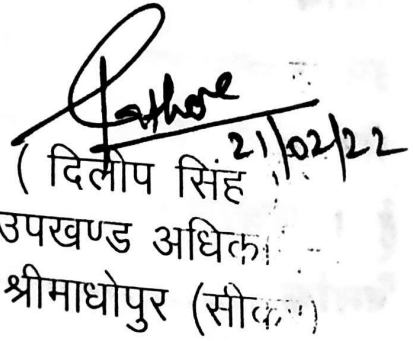 Rathore
21/02/22
( दिलीप सिंह
उपखण्ड अधिका
श्रीमाधोपुर (सीक